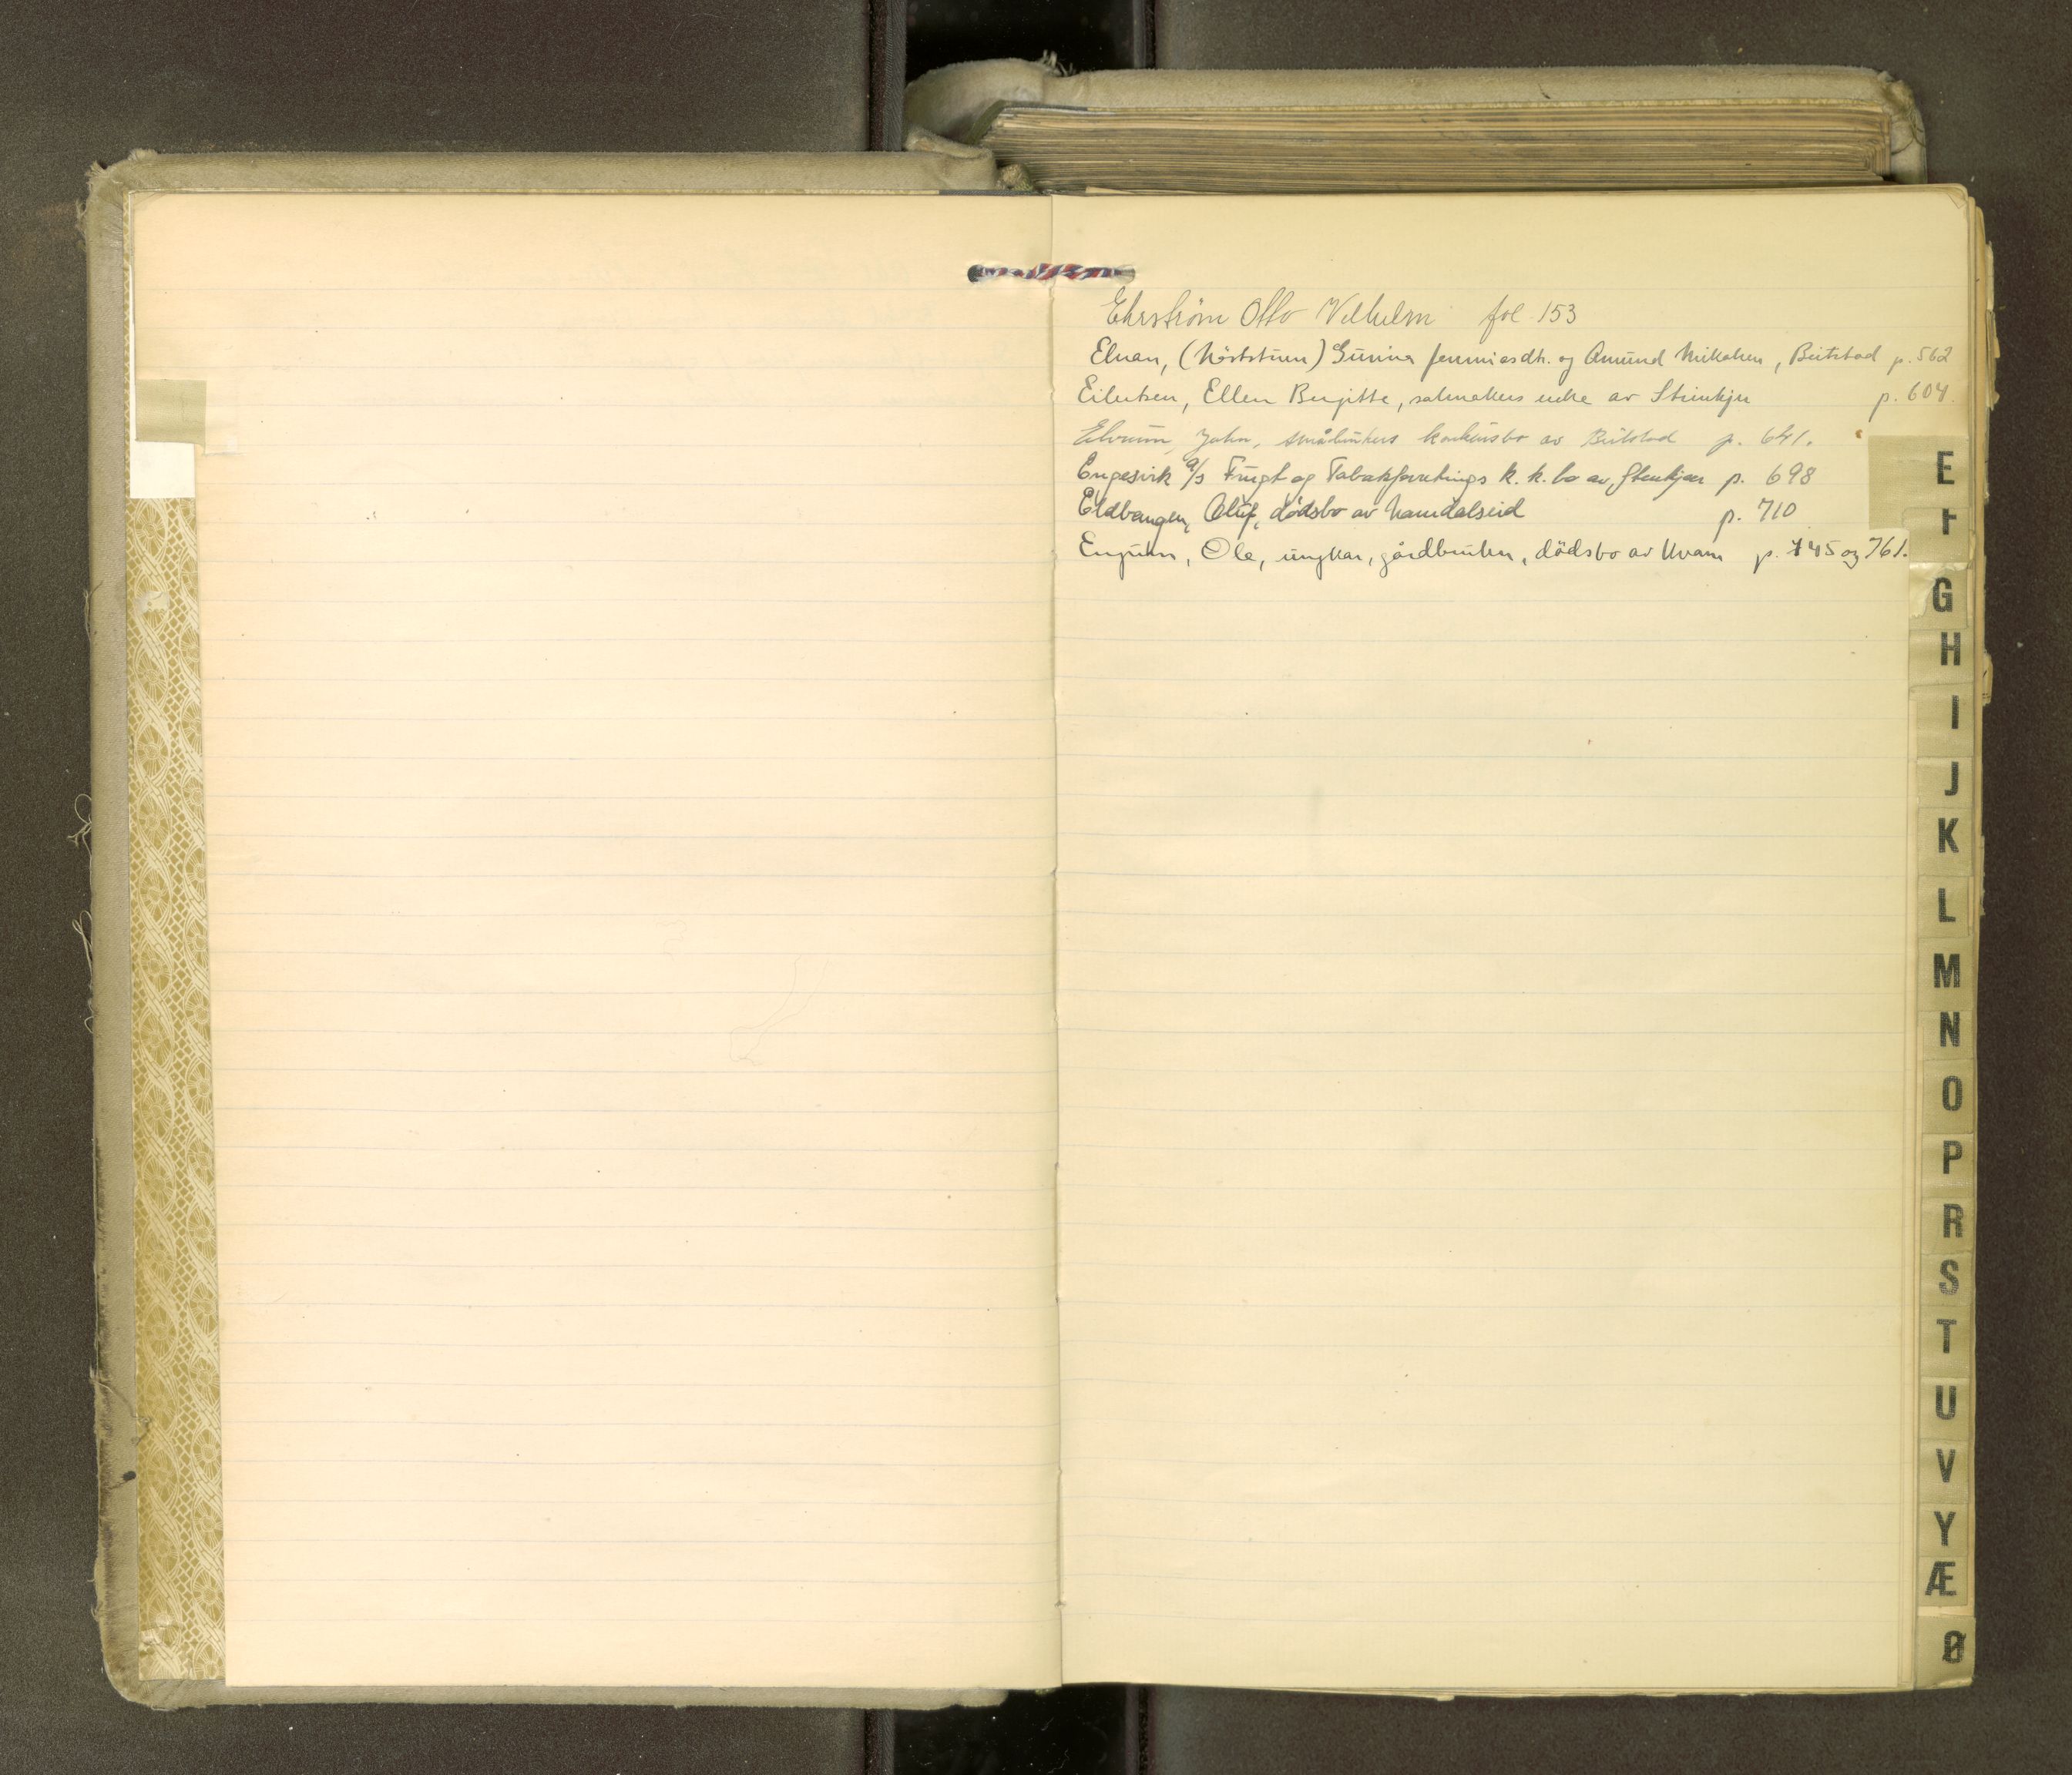 Ehrström Otto Vilhelm fol 153
Elnan, Gunina og Amund Mikalsen, Beitstad p. 562
Eilertsen, Ellen Birgitte, salmakers enke av Steinkjer p. 604.
Elvrum, John, småbrukers konkursbo av Beitstad p. 641.
Engesvik a/s Frugt og Tabakforretnings k. k. bo av, Stenkjær p. 698
Eldbangen, Oluf, dødsbo av Namdalseid p. 710
Ole, ungkar, gårdbruker, dödsbo av Kvam p. 745 og 761.
E
F
G
H
I
J
K
L
M
N
O
P
R
S
T
U
V
Y
Æ
Ø